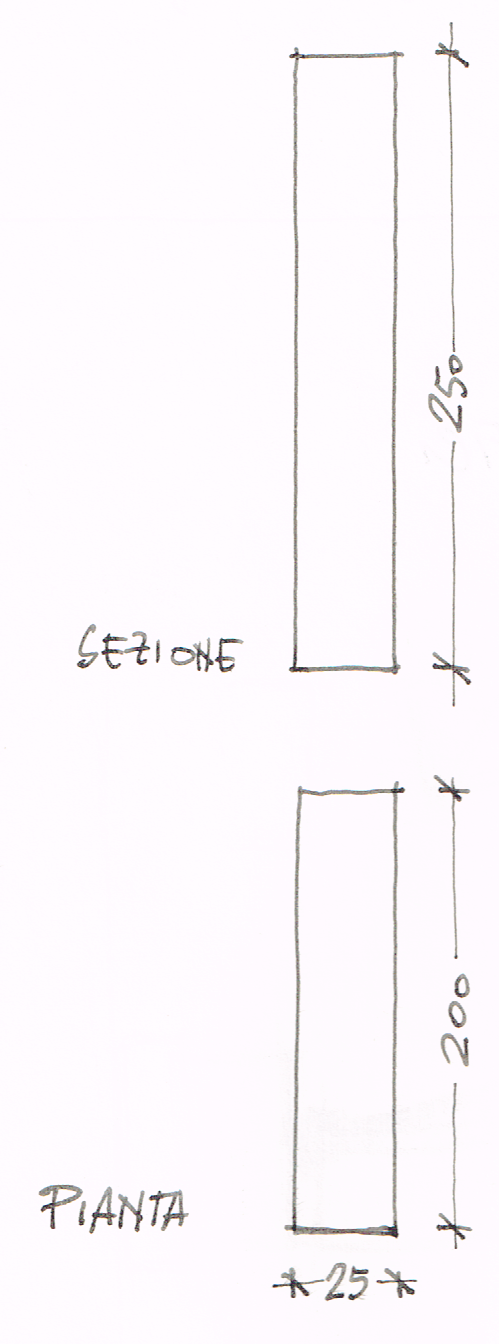 250
SEZIONE
200
PIANTA
25